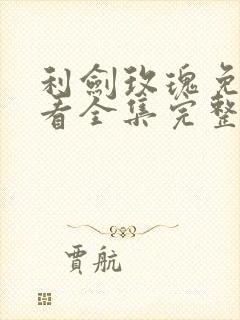 利劍玫瑰免
看全集完整
賈航